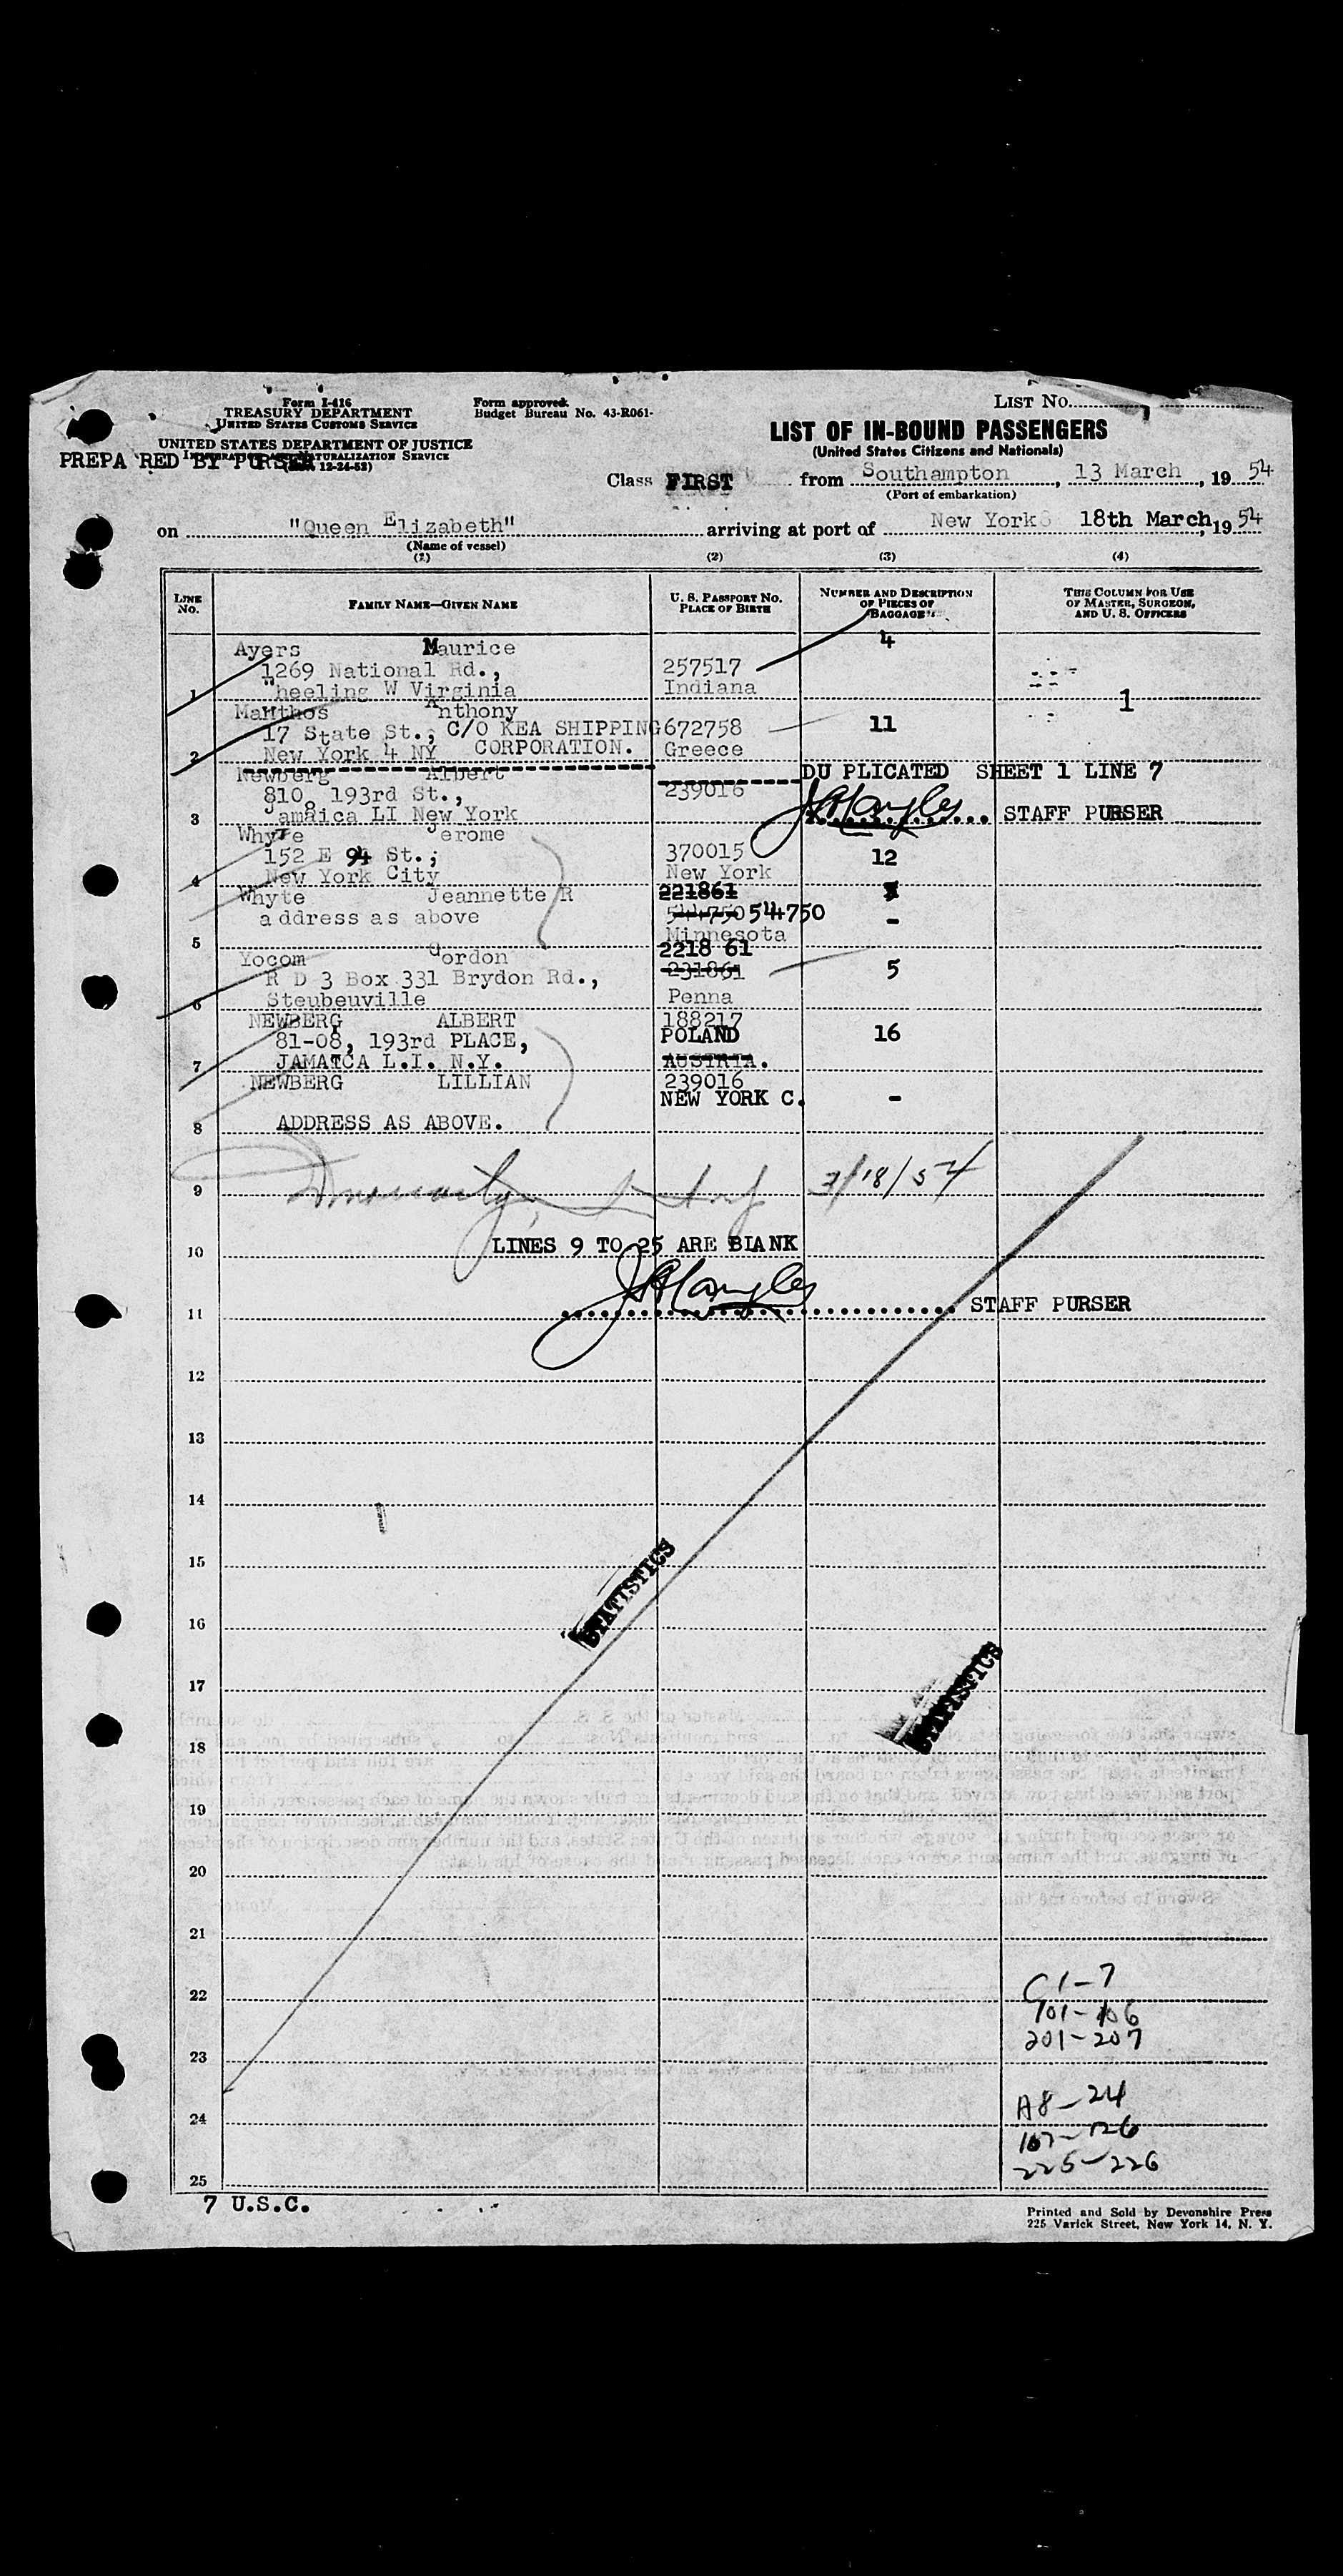 Form I-416
TREASURY DEPARTMENT
UNITED STATES CUSTOMS SERVICE
UNITED STATES DEPARTMENT OF JUSTICE
IMMIGRATION AND NATURALIZATION SERVICE
12-24-52)
PREPA RED BY PURSER
Form approved.
Budget Bureau No. 43-R061-
LIST No.
LIST OF IN-BOUND PASSENGERS
(United States Citizens and Nationals)
Class FIRST from Southampton, 13 March, 1954
(Port of embarkation)
on "Queen Elizabeth" arriving at port of New York 18th March, 1954
(Name of vessel)
(1) (2) (3) (4)
LINE No.
FAMILY NAME—GIVEN NAME
U. S. PASSPORT NO. PLACE OF BIRTH
NUMBER AND DESCRIPTION OF PIECES OF BAGGAGE
THIS COLUMN FOR USE OF MASTER, SURGEON, AND U. S. OFFICERS
Ayers Maurice 4
1269 National Rd., 257517
1 "heeling W Virginia Indiana 1
Manthos Anthony
17 State St., C/O KEA SHIPPING 672758 11
2 New York 4 NY CORPORATION. Greece
Newberg Albert DU PLICATED SHEET 1 LINE 7
810, 193rd St., 239016
3 Jamaica LI New York STAFF PURSER
Whyte Jerome
152 E 94 St., 370015 12
4 New York City New York
Whyte Jeannette R 221861
address as above 544750 544750 -
5 Minnesota
Yocom Gordon 2218 61
R D 3 Box 331 Brydon Rd., 231861 5
6 Steubeuville Penna
NEWBERG ALBERT 188217
81-08, 193rd PLACE, POLAND 16
7 JAMAICA L.I. N.Y. AUSTRIA.
NEWBERG LILLIAN 239016
NEW YORK C. -
8 ADDRESS AS ABOVE.
9 3/18/54
10 LINES 9 TO 25 ARE BLANK
11 STAFF PURSER
12
13
14
15
STATISTICS
16
17
STATISTICS
18
19
20
21
22 C 1-7
101-106
201-207
23
A8-24
24
107-126
225-226
25
7 U.S.C.
Printed and Sold by Devonshire Press
225 Varick Street, New York 14, N. Y.